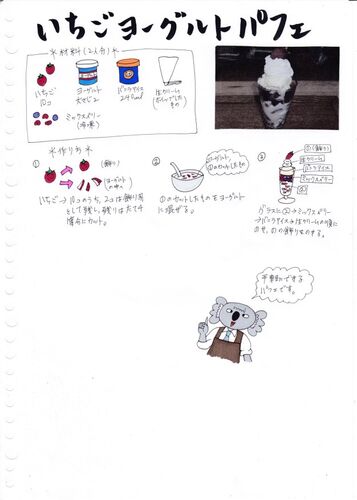 いちごヨーグルトパフェ
＊材料(2人分)＊
いちご
10コ
ヨーグルト
大さじ2
バニラアイス
240ml
生クリーム
(ホイップしたもの)
ミックスベリー
(冷凍)
＊作り方＊
①
(飾り)
(ヨーグルトの中へ)
いちご→10コのうち、2コは飾り用
として残し、残りはたて4
等分にカット。
②
ヨーグルト
①のカットしたもの
①のカットしたものをヨーグルト
に混ぜる。
③
①(飾り)
生クリーム
バニラアイス
ミックスベリー
②
グラスに②→ミックスベリー
→バニラアイス→生クリームの順に
のせ、①の飾りをのせる。
手軽にできる
パフェです。